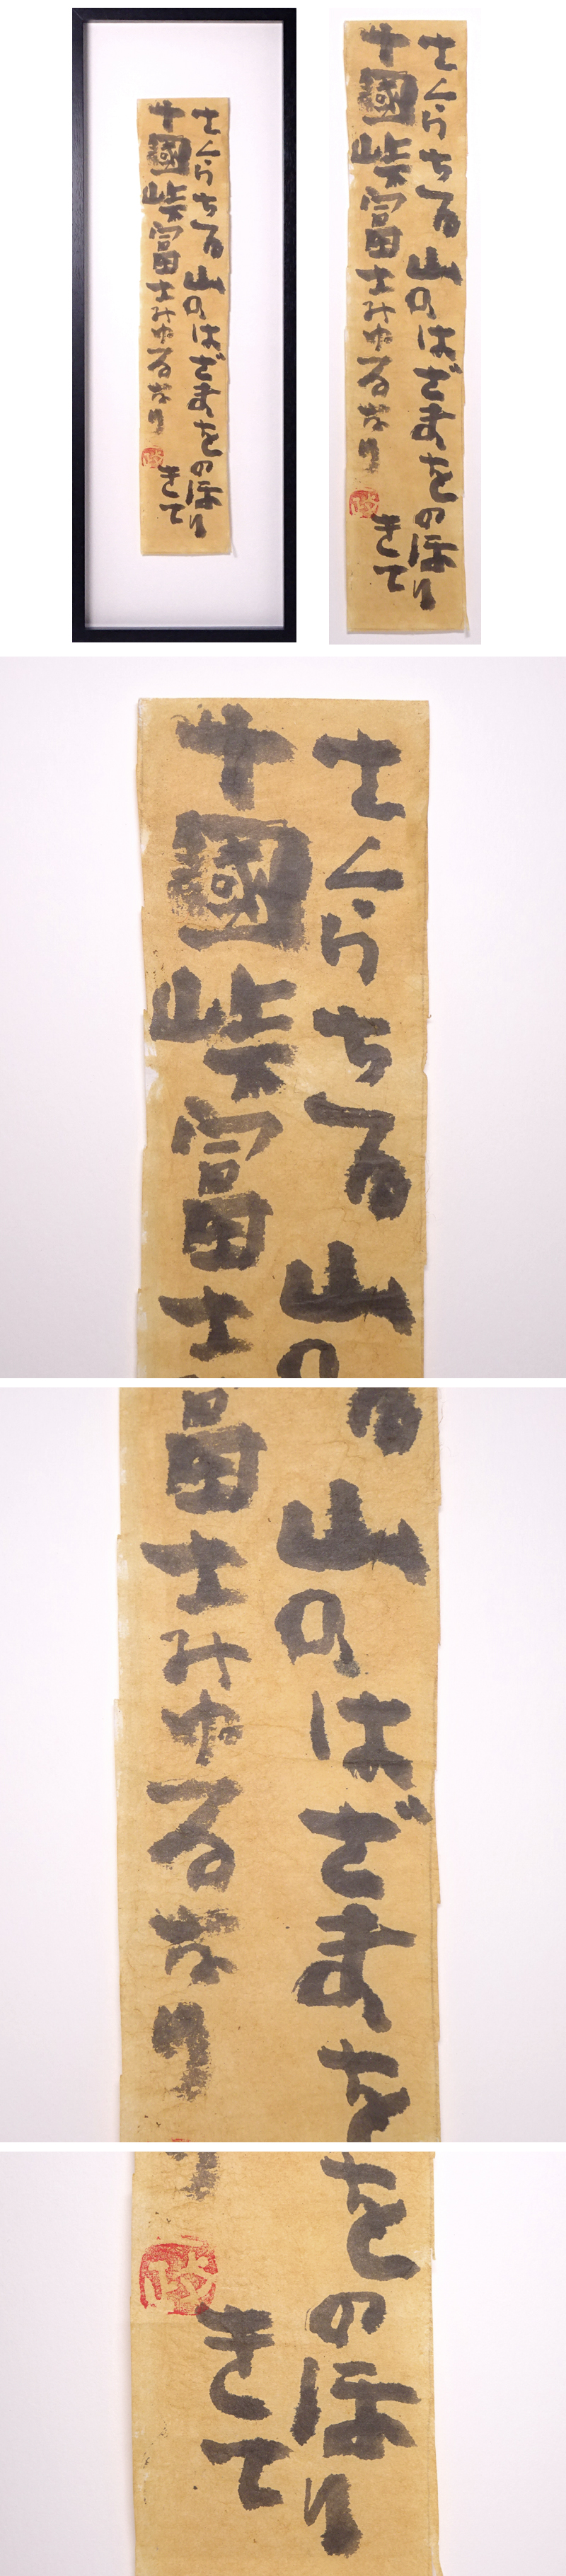 さくらちる山のはざまをのほり
きて
十國峠富士みゆるなり